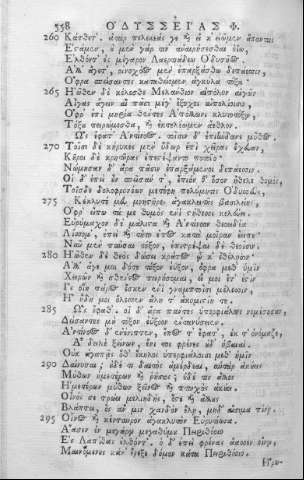 558 ΟΔΥΣΣΕΙΑΣ Φ.
260 Κάτθετ'· ἀτὰρ πελέκεάς γε ᾗ κ' εἰῶμεν ἅπαντας
Ἑστάμεν· οὐ μὲν γάρ τιν' ἀναιρήσεσθαι ὀΐω,
Ἐλθόντ' ἐς μέγαρον Λαερτιάδεω Ὀδυσῆος.
Ἀλλ' ἄγετ', οἰνοχόος μὲν ἐπαρξάσθω δεπάεσσιν,
Ὄφρα σπείσαντες καταθείομεν ἀγκύλα τόξα·
265 Ἠῶθεν δὲ κέλεσθε Μελάνθιον αἰπόλον αἰγῶν
Αἶγας ἄγειν, αἳ πᾶσι μέγ' ἔξοχοι αἰπολίοισιν,
Ὄφρ' ἐπὶ μηρία θέντες Ἀπόλλωνι κλυτοτόξῳ
Τόξου πειρώμεσθα, καὶ ἐκτελέωμεν ἄεθλον.
Ὣς ἔφατ' Ἀντίνοος, τοῖσιν δ' ἐπιήνδανε μῦθος.
270 Τοῖσι δὲ κήρυκες μὲν ὕδωρ ἐπὶ χεῖρας ἔχευαν,
Κοῦροι δὲ κρητῆρας ἐπεστέψαντο ποτοῖο·
Νώμησαν δ' ἄρα πᾶσιν ἐπαρξάμενοι δεπάεσσιν.
Οἱ δ' ἐπεὶ οὖν σπεῖσάν τ', ἔπιόν θ' ὅσον ἤθελε θυμός,
Τοῖς δὲ δολοφρονέων μετέφη πολύμητις Ὀδυσσεύς,
275 Κέκλυτέ μευ μνηστῆρες ἀγακλειτῆς βασιλείης,
Ὄφρ' εἴπω τά με θυμὸς ἐνὶ στήθεσσι κελεύει,
Εὐρύμαχον δὲ μάλιστα καὶ Ἀντίνοον θεοειδέα
Λίσσομ', ἐπεὶ καὶ τοῦτο ἔπος κατὰ μοῖραν ἔειπε·
Νῦν μὲν παῦσαι τόξον, ἐπιτρέψαι δὲ θεοῖσιν·
280 Ἠῶθεν δὲ θεὸς δώσει κράτος ᾧ κ' ἐθέλῃσιν·
Ἀλλ' ἄγε μοι δότε τόξον ἐΰξοον, ὄφρα μεθ' ὑμῖν
Χειρῶν καὶ σθένεος πειρήσομαι, εἴ μοι ἔτ' ἐστὶν
Ἲς οἵη πάρος ἔσκεν ἐνὶ γναμπτοῖσι μέλεσσιν,
Ἦ ἤδη μοι ὄλεσσεν ἄλη τ' ἀκομιστίη τε.
285 Ὣς ἔφαθ'· οἱ δ' ἄρα πάντες ὑπερφιάλως νεμέσησαν,
Δείσαντες μὴ τόξον ἐΰξοον ἐντανύσειεν.
Ἀντίνοος δ' ἐνένιπεν, ἔπος τ' ἔφατ', ἔκ τ' ὀνόμαζε,
Ἆ δειλὲ ξείνων, ἔνι τοι φρένες οὐδ' ἠβαιαί.
Οὐκ ἀγαπᾷς ὃ ἕκηλος ὑπερφιάλοισι μεθ' ἡμῖν
290 Δαίνυσαι; οὐδέ τι δαιτὸς ἀμέρδεαι, αὐτὰρ ἀκούεις
Μύθων ἡμετέρων καὶ ῥήσιος; οὐδέ τις ἄλλος
Ἡμετέρων μύθων ξεῖνος καὶ πτωχὸς ἀκούει.
Οἶνός σε τρώει μελιηδής, ὅστε καὶ ἄλλους
Βλάπτει, ὃς ἄν μιν χανδὸν ἕλῃ, μηδ' αἴσιμα πίνῃ.
295 Οἶνος καὶ κένταυρον ἀγακλυτὸν Εὐρυτίωνα
Ἄασεν ἐν μεγάρῳ μεγαθύμου Πειριθόοιο
Ἐς Λαπίθας ἐλθόντ'. ὁ δ' ἐπεὶ φρένας ἄασεν οἴνῳ,
Μαινόμενος κάκ' ἔρεξε δόμον κάτα Πειριθόοιο.